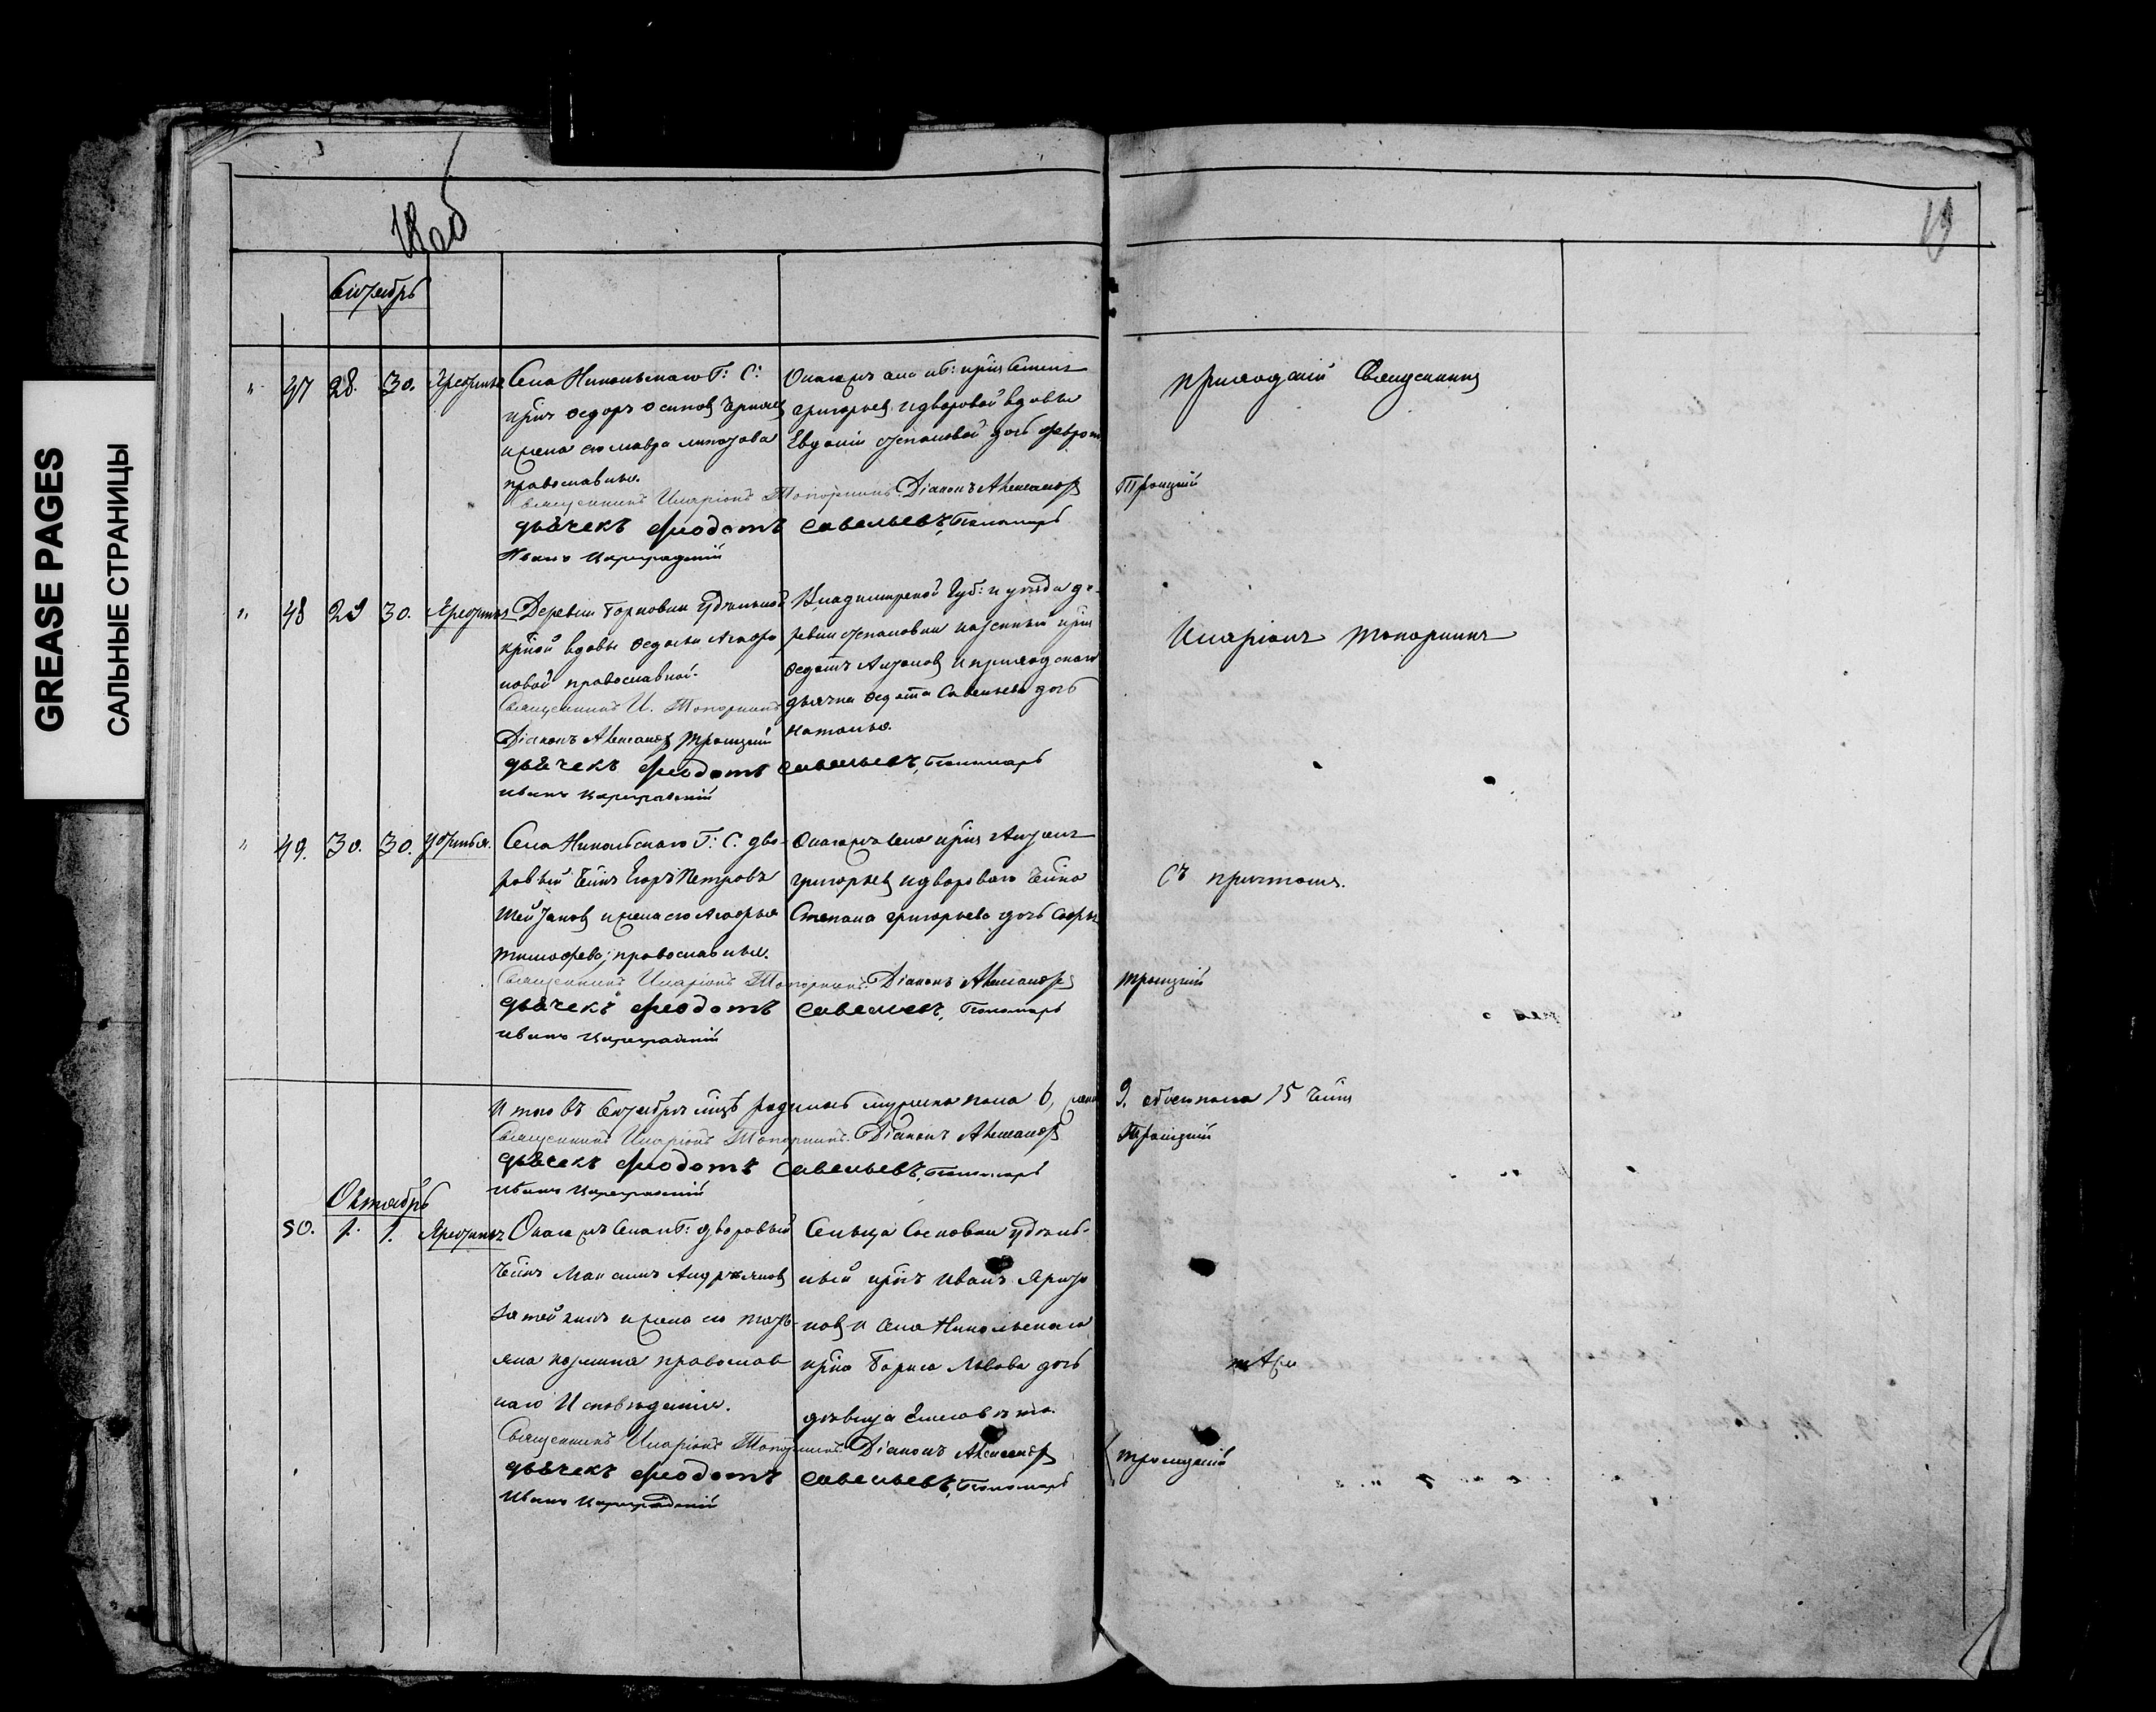 GREASE PAGES
САЛЬНЫЕ СТРАНИЦЫ
18об
19
Сентябрь
" 47 28. 30. Христина
Села Никольскаго Г: С:
крнъ Федоръ Осиповъ
и жена его Мавра
православные.
Онагожъ села Г: крнъ Семенъ
Григорьевъ и дворовой вдовы
Евдокіи Степановой дочь
приходскій Священникъ
Священникъ Иларіонъ Топорнинъ Діаконъ Александръ Троицкій
дьячекъ Феодотъ Савельевъ, Пономарь
Иванъ Цареградскій
" 48 29 30.
Деревни Горловки удѣльной
крной вдовы Федосьи Агафо
новой православной.
Владимирской Губ: и уѣзда де-
ревни Степановки казенный крнъ
Федотъ Антоновъ и приходскаго
дьячка Федота Савельева дочь
Наталья.
Иларіонъ Топорнинъ
Священникъ И. Топорнинъ
Діаконъ Александръ Троицкій
дьячекъ Феодотъ Савельевъ, Пономарь
Иванъ Цареградскій
" 49. 30. 30. Устинья.
Села Никольскаго Г: С. дво-
ровый Егоръ Петровъ
и жена его Агафья
Тимофева, православные.
Онагожъ села крнъ Антонъ
Григорьевъ и двороваго
Степана Григорьева дочь
съ причтомъ.
Священникъ Иларіонъ Топорнинъ Діаконъ Александръ Троицкій
дьячекъ Феодотъ Савельевъ, Пономарь
Иванъ Цареградскій
Итого въ Сентябрѣ мцѣ родилось мужеска пола 6, жен. 9. обоего пола 15
Священникъ Иларіонъ Топорнинъ. Діаконъ Александръ Троицкій
дьячекъ Феодотъ Савельевъ, Пономарь
Иванъ Цареградскій
Октябрь
50. 1. 1.
Онагожъ села Г: дворовый
Максимъ Андреяновъ
и жена его Тать
яна Козмина православ
наго Исповѣданія.
Сельца Сосновки удѣль-
ный крнъ Иванъ
новъ и села Никольскаго
крна Бориса Львова дочь
дѣвица Елисавета.
тѣже
Священникъ Иларіонъ Топорнинъ. Діаконъ Александръ Троицкій
дьячекъ Феодотъ Савельевъ, Пономарь
Иванъ Цареградскій